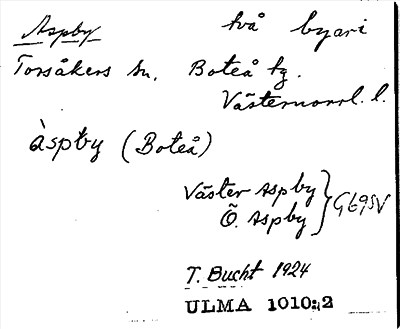 Aspby två byar i
Torsåkers sn. Boteå tg.
Västernorrl. l.
àspby (Boteå)
Väster Aspby
Ö. Aspby
T. Bucht 1924
ULMA 1010:2